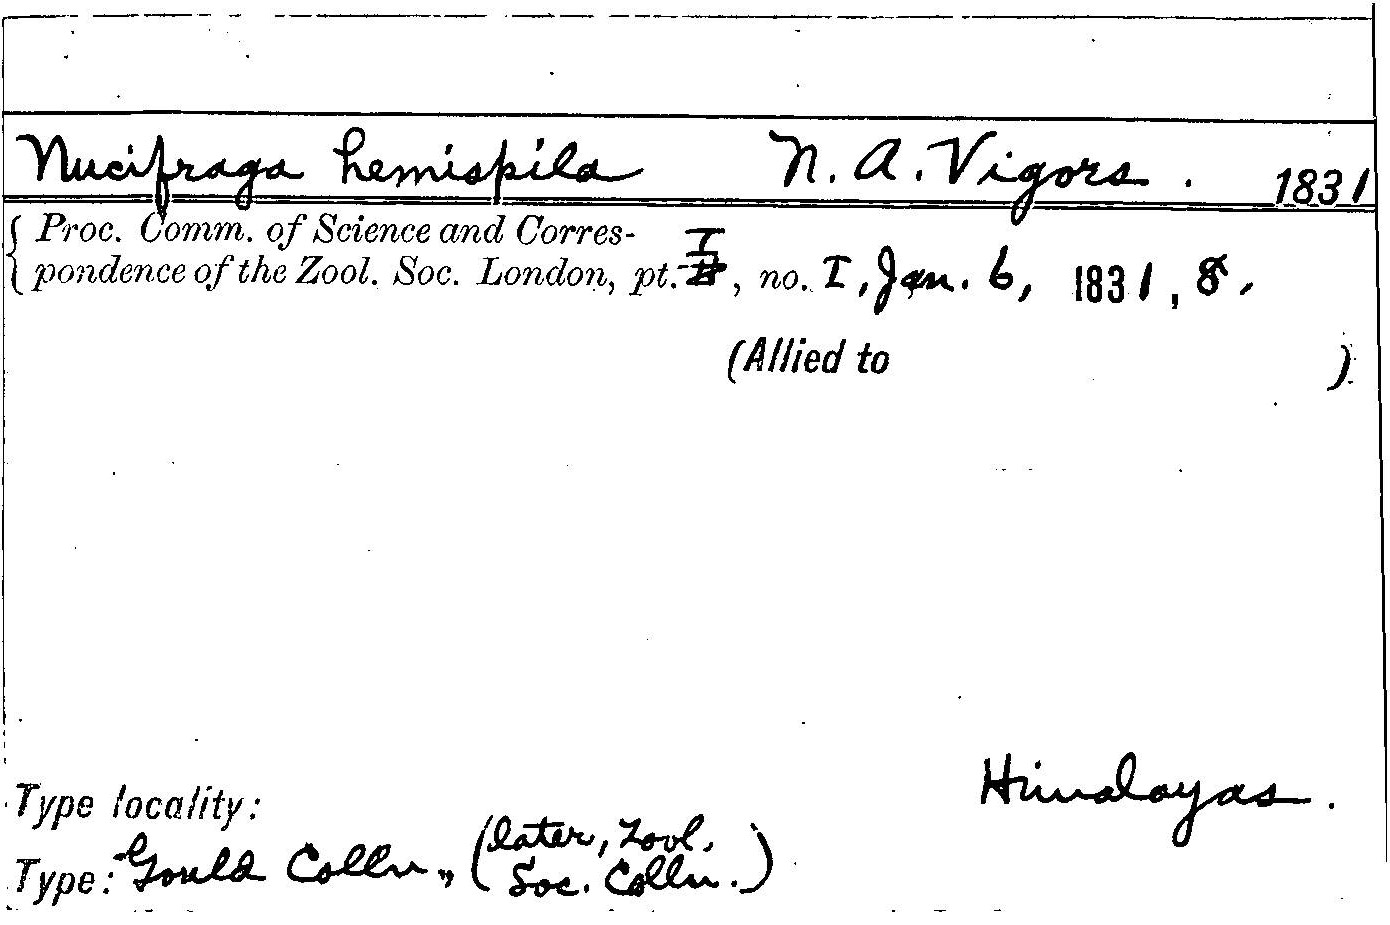 Nucifraga hemispila N. A. Vigors. 1831
Proc. Comm. of Science and Corres-
pondence of the Zool. Soc. London, pt. I, no. I, Jan. 6, 1831, 8.
(Allied to )
Himalayas.
Type locality:
Type: Gould Colln., (later, Zool.
Soc. Colln.)